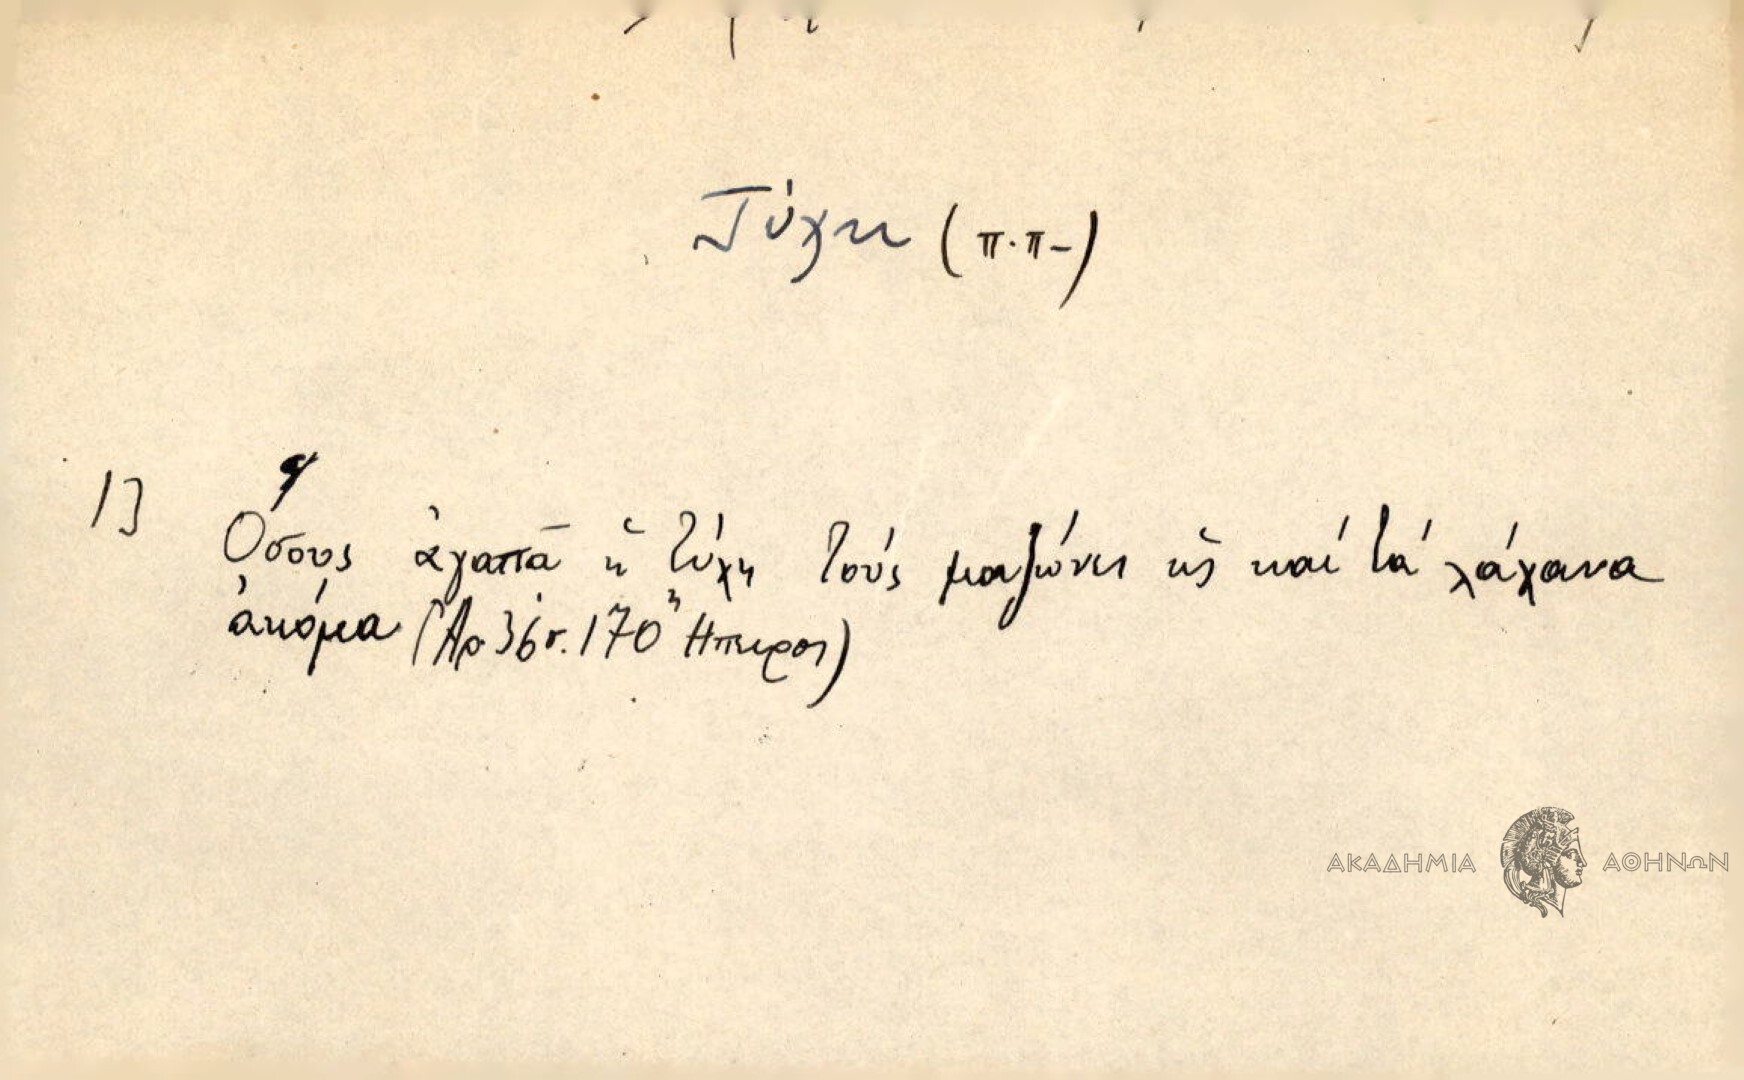 Τύχη (π.π-)
1] Ὅσους ἀγαπᾶ ἡ τύχη τούς μαζώνει ὥς καί τά λάχανα
ἀκόμα (Ἀρ. 36 σ. 170 Ἤπειρος)
ΑΚΑΔΗΜΙΑ ΑΘΗΝΩΝ